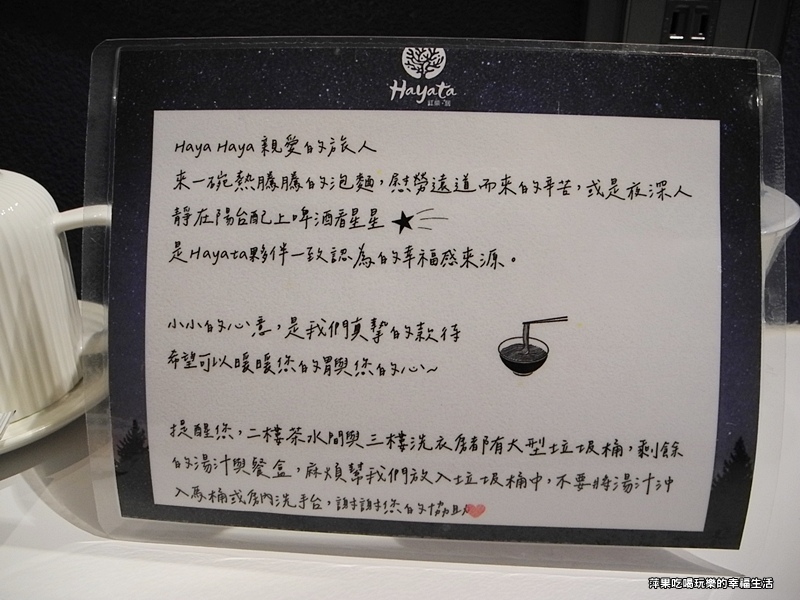 Hayata
Haya Haya 親愛的旅人
來一碗熱騰騰的泡麵，慰勞遠道而來的辛苦，或是夜深人
靜在陽台配上啤酒看星星
是Hayata夥伴一致認為的幸福感來源。
小小的心意，是我們真摯的款待
希望可以暖暖您的胃與您的心~
提醒您，二樓茶水間與三樓洗衣房都有大型垃圾桶，剩餘
的湯汁與餐盒，麻煩幫我們放入垃圾桶中，不要將湯汁沖
入馬桶或房內洗手台，謝謝您的協助
萍果吃喝玩樂的幸福生活